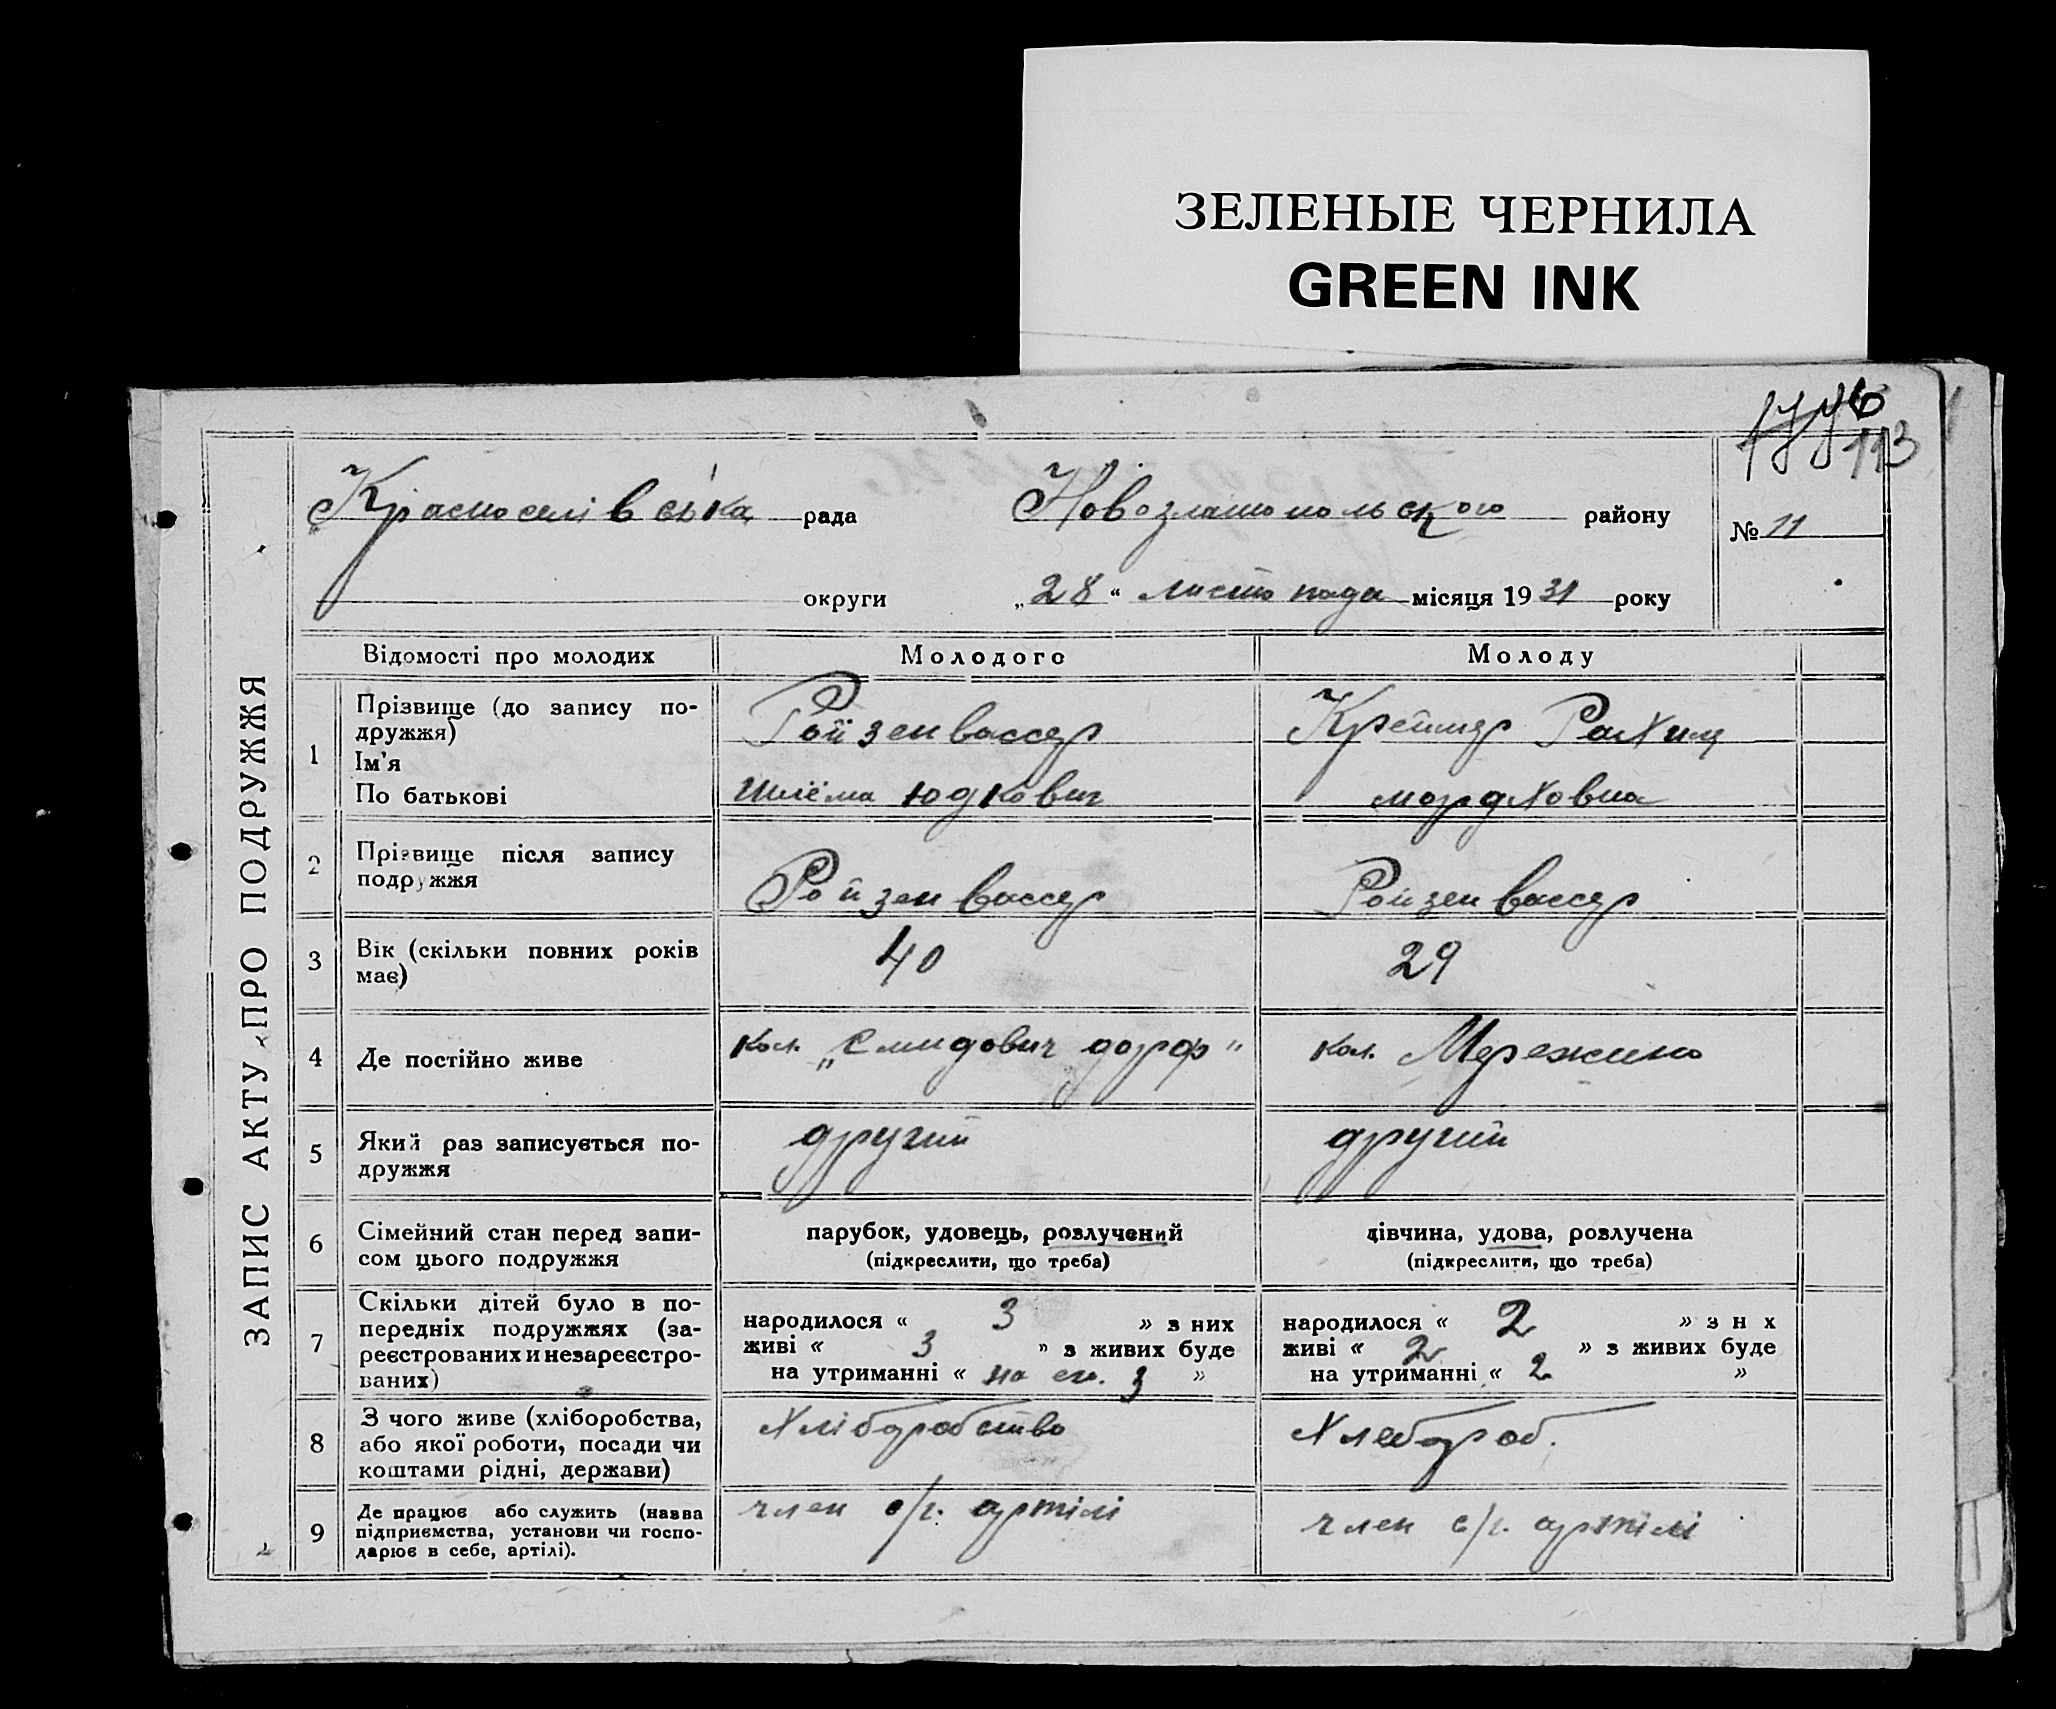 ЗЕЛЕНЫЕ ЧЕРНИЛА
GREEN INK
113
Красноселівська рада Новозлатопольського району № 11
округи „28“ листопада місяця 1931 року
ЗАПИС АКТУ ПРО ПОДРУЖЖЯ
Відомості про молодих Молодого Молоду
1 Прізвище (до запису по-
дружжя) Ройзенвассер Креймер Рахиль
Ім'я
По батькові Шлёма Юдкович Мордховна
2 Прізвище після запису
подружжя Ройзенвассер Ройзенвассер
3 Вік (скільки повних років
має) 40 29
4 Де постійно живе кол. „Смидович дорф" кол. Мережино
5 Який раз записується по-
дружжя другий другий
6 Сімейний стан перед запи-
сом цього подружжя парубок, удовець, розлучений
(підкреслити, що треба) дівчина, удова, розлучена
(підкреслити, що треба)
7 Скільки дітей було в по-
передніх подружжях (за-
реєстрованих и незареєстро-
ваних)
народилося « 3 » з них
живі « 3 » з живих буде
на утриманні « на ег. 3 »
народилося « 2 » з н х
живі « 2 » з живих буде
на утриманні « 2 »
8 З чого живе (хліборобства,
або якої роботи, посади чи
коштами рідні, держави) Хліборобство Хлебороб.
9 Де працює або служить (назва
підприємства, установи чи госпо-
дарює в себе, артілі). член с/г. артілі член с/г. артілі